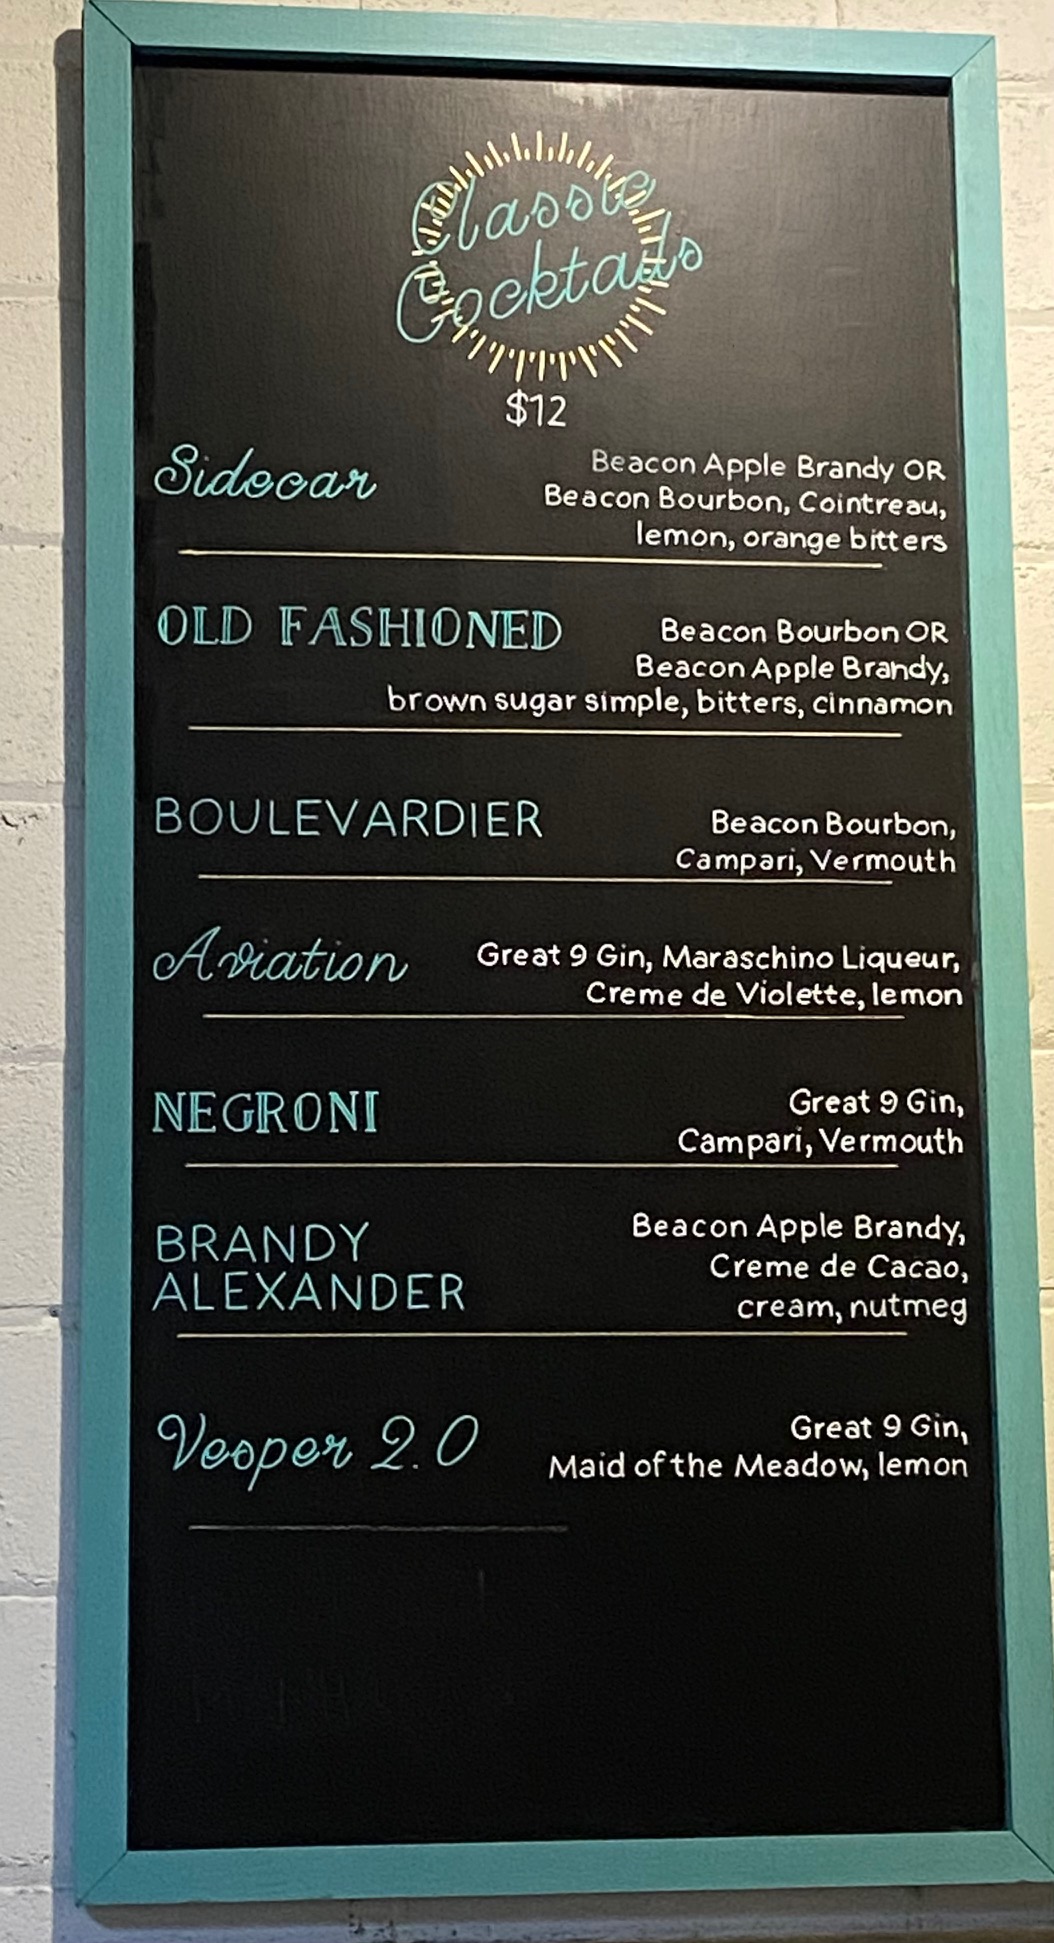 Classic
Cocktails
$12
Sidecar
Beacon Apple Brandy OR
Beacon Bourbon, Cointreau,
lemon, orange bitters
OLD FASHIONED
Beacon Bourbon OR
Beacon Apple Brandy,
brown sugar simple, bitters, cinnamon
BOULEVARDIER
Beacon Bourbon,
Campari, Vermouth
Aviation
Great 9 Gin, Maraschino Liqueur,
Creme de Violette, lemon
NEGRONI
Great 9 Gin,
Campari, Vermouth
BRANDY
ALEXANDER
Beacon Apple Brandy,
Creme de Cacao,
cream, nutmeg
Vesper 2.0
Great 9 Gin,
Maid of the Meadow, lemon